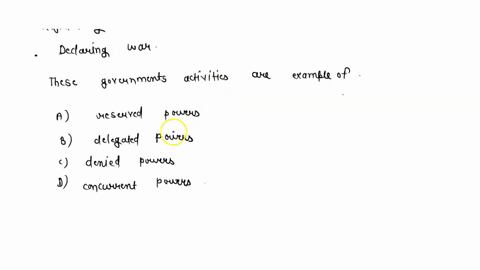 . Declaring war.
These governments activities are example of .
A) reserved powrs
B) delegated powrs
C) denied powrs
D) concurrent powrs .